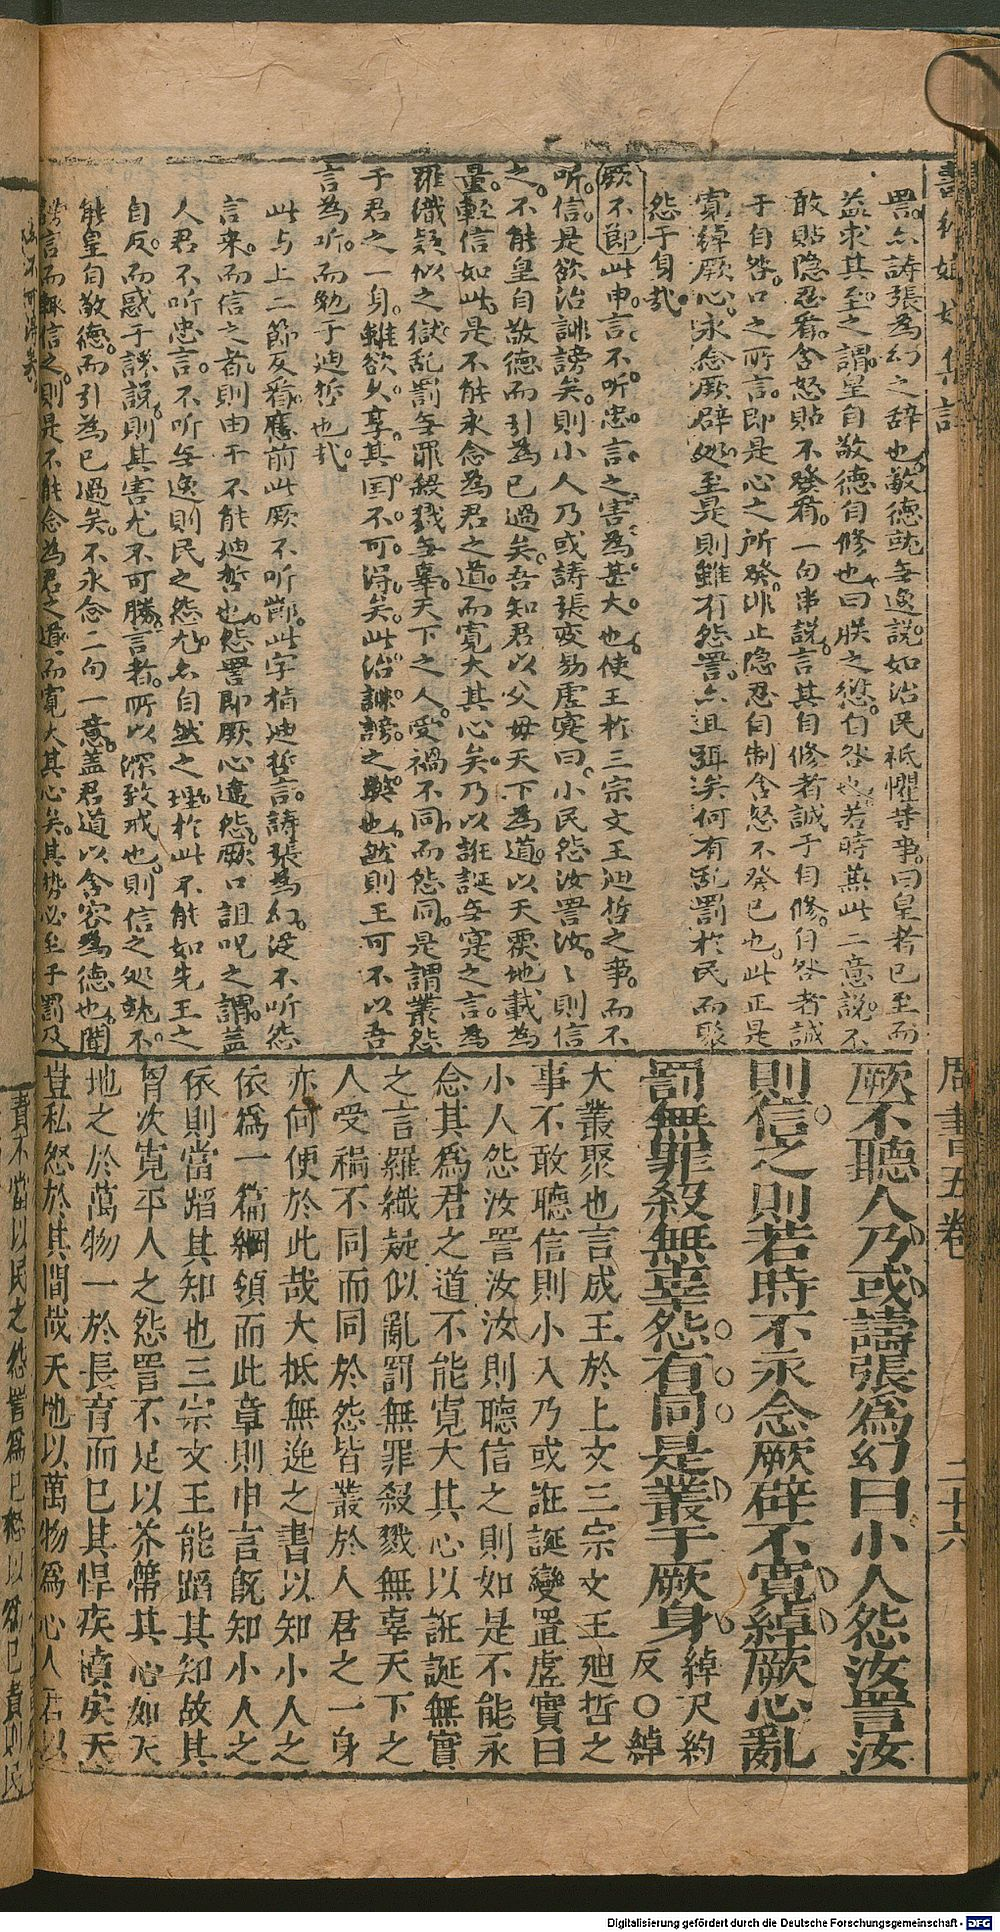 詈亦譸張為幻之辞也敬德就無逸說如治民祗懼等事曰皇者已至而
益求其至之謂皇自敬德自修也曰朕之愆自咎也若時兼此二意說不
敢貼隐忍看含怒貼不發看一句串說言其自修者誠于自修自咎者誠
于自咎口之所言即是心之所發非止隐忍自制含怒不發已也此正是
寬綽厥心永念厥辟処至是則雖有怨詈亦且弭矣何有乱罰於民而聚
怨于身哉
厥不節此申言不听忠言之害為甚大也使王於三宗文王迪哲之事而不
听信是欲治誹謗矣則小人乃或譸張变易虗寔曰小民怨汝詈汝〻則信
之不能皇自敬德而引為已過矣吾知君以父母天下為道以天覆地載為
量軽信如此是不能永念為君之道而寬大其心矣乃以誑誕無寔之言為
羅織疑似之獄乱罰無罪殺戮無辜天下之人受禍不同而怨同是謂叢怨
于君之一身雖欲久享其国不可得矣此治誹謗之弊也然則王可不以吾
言為听而勉于迪哲也哉
此与上二節反看應前此厥不听節此字指迪哲言譸張為幻是不听忠
言来而信之者則由于不能迪哲也怨詈即厥心違怨厥口詛呪之謂盖
人君不听忠言不听無逸則民之怨尤亦自然之理於此不能如先王之
自反而惑于誅說則其害尤不可勝言者所以深致戒也則信之処就不
能皇自敬德而引為已過矣不永念二句一意盖君道以含容為德也聞
言而輒信之則是不能念為君之道而寬大其心矣其勢必至于罰及
周書五卷 二十六
厥不聽人乃或譸張爲幻曰小人怨汝詈汝
則信之則若時不永念厥辟不寬綽厥心亂
罰無罪殺無辜怨有同是叢于厥身 綽尺約反○綽
大叢聚也言成王於上文三宗文王迪哲之
事不敢聽信則小人乃或誑誕變置虛實曰
小人怨汝詈汝汝則聽信之則如是不能永
念其爲君之道不能寬大其心以誑誕無實
之言羅織疑似亂罰無罪殺戮無辜天下之
人受禍不同而同於怨皆叢於人君之一身
亦何便於此哉大抵無逸之書以知小人之
依爲一篇綱領而此章則申言旣知小人之
依則當蹈其知也三宗文王能蹈其知故其
胷次寬平人之怨詈不足以芥蔕其心如天
地之於萬物一於長育而已其悍疾憤戾天
豈私怒於其間哉天地以萬物爲心人君以
責不當以民之怨詈爲已怒以爲已責則民
Digitalisierung gefördert durch die Deutsche Forschungsgemeinschaft - DFG